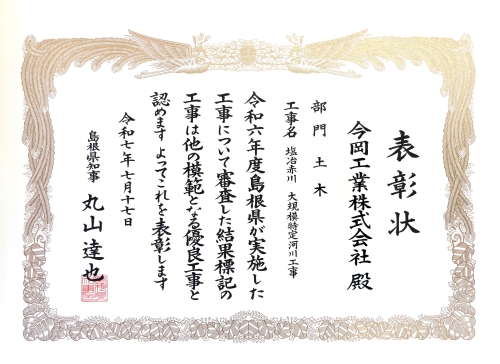 表彰状
今岡工業株式会社 殿
部門 土木
工事名 塩冶赤川 大規模特定河川工事
令和六年度島根県が実施した
工事について審査した結果標記の
工事は他の模範となる優良工事と
認めます よってこれを表彰します
令和七年七月十七日
島根県知事 丸山達也